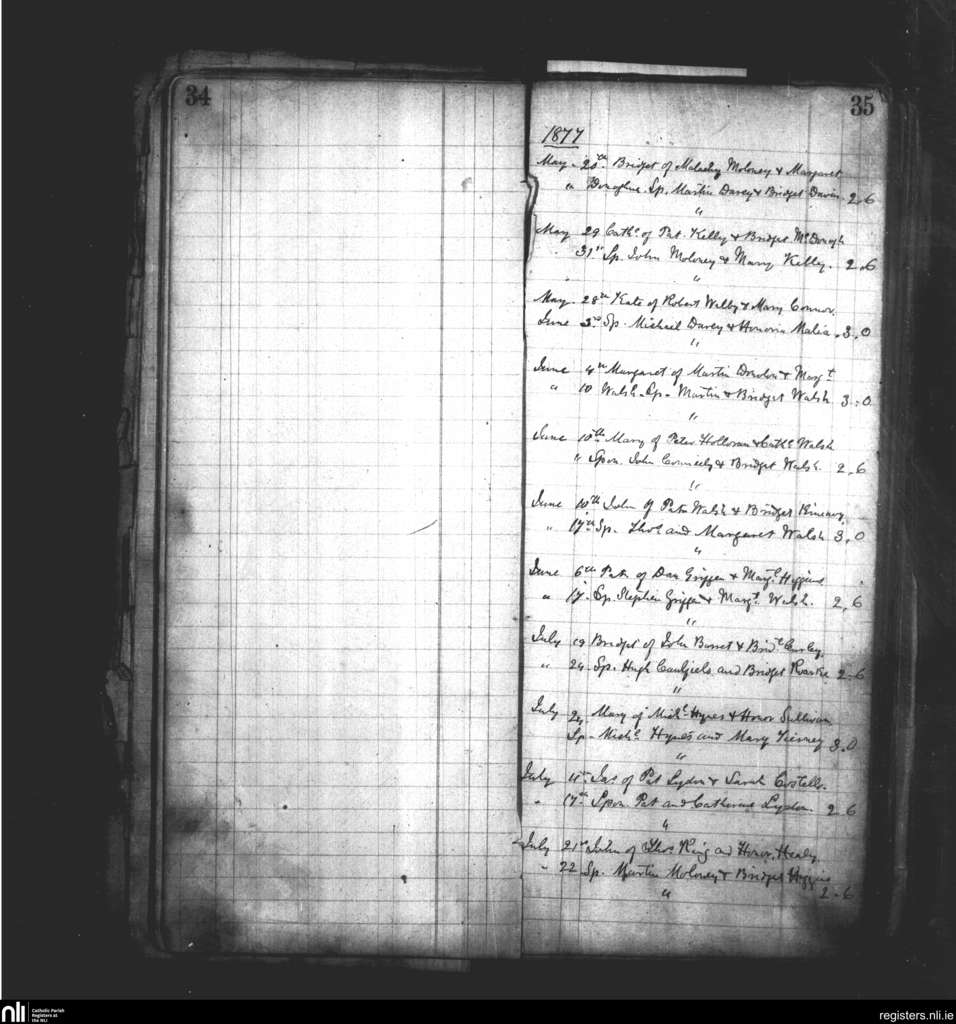 34
35
1877
May 20th Bridget of Malachy Moloney & Margaret
" Donoghue Sp. Martin Davey & Bridget 2.6
"
May 29 Cathe of Pat. Kelly & Bridget McDonagh
31st Sp. John Moloney & Mary Kelly. 2.6
"
May 28th Kate of Robert Welby & Mary Connor.
June 3rd Sp. Michael Davey & Honoria Malia. 3.0
"
June 4th Margaret of Martin & Margt
" 10 Walsh. Sp. Martin & Bridget Walsh 3:0
"
June 10th Mary of Peter Holloran & Cathe Walsh
" Spon. John Conneely & Bridget Walsh. 2.6
"
June 10th John of Patk Walsh & Bridget
" 17th Sp. Thos and Margaret Walsh 3.0
"
June 6th Patk of Dan Griffen & Margt Higgins
" 17. Sp. Stephen Griffen & Margt Walsh. 2.6
"
July 19 Bridget of John & Bridt Curley.
" 24. Sp. Hugh and Bridget 2-6
"
July 24 Mary of Michl Hynes & Honor Sullivan
Sp. Michl Hynes and Mary Tierney 3.0
"
July 11th Jas of Pat Lydon & Sarah Costello.
" 17th Spon. Pat and Catherine Lydon. 2 6
"
July 21st John of Thos King and Honor. Healy.
" 22 Sp. Martin Moloney & Bridget Higgins
2-6
"
nli
Catholic Parish
Registers at
the NLI
registers.nli.ie